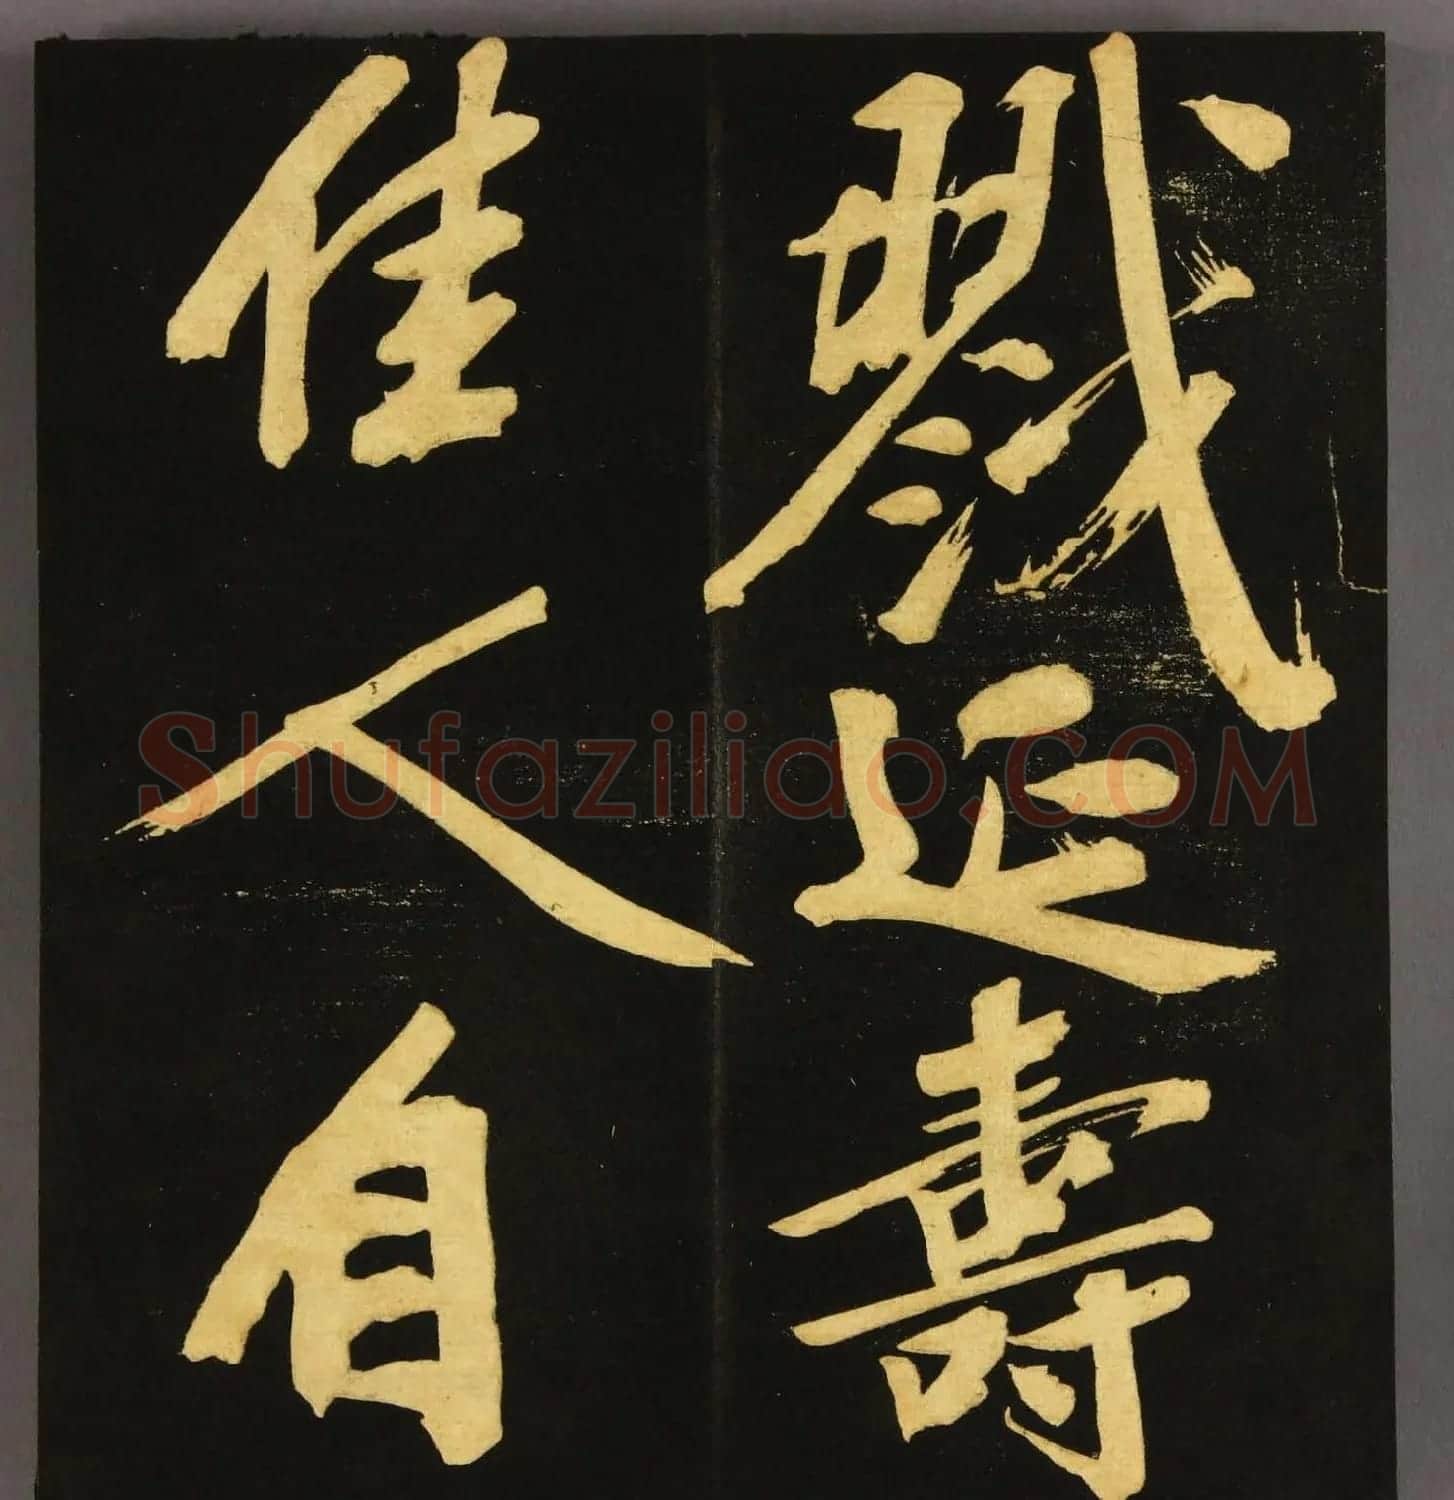 戮延壽
佳人自
Shufaziliao.COM